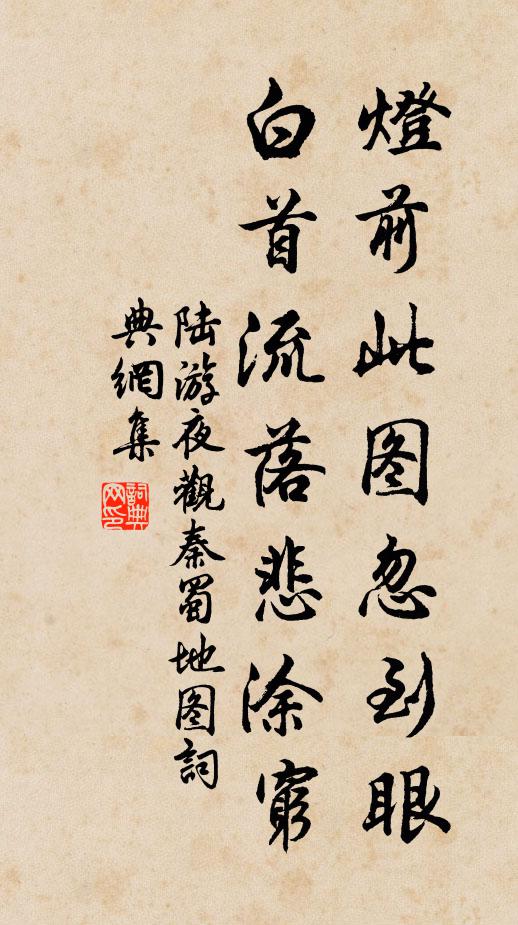 燈前此图忽到眼
白首流落悲涂窮
陆游夜觀秦蜀地图詞
典網集
詞典
网印